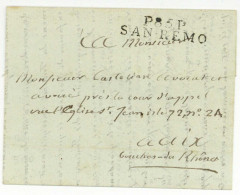 P85P
SAN REMO
A Monsieur
Monsieur Castellan avocat et
avoué près la cour d'appel
rue l'Eglise St. Jean isle 72 N°. 24
à aix
bouches du Rhône